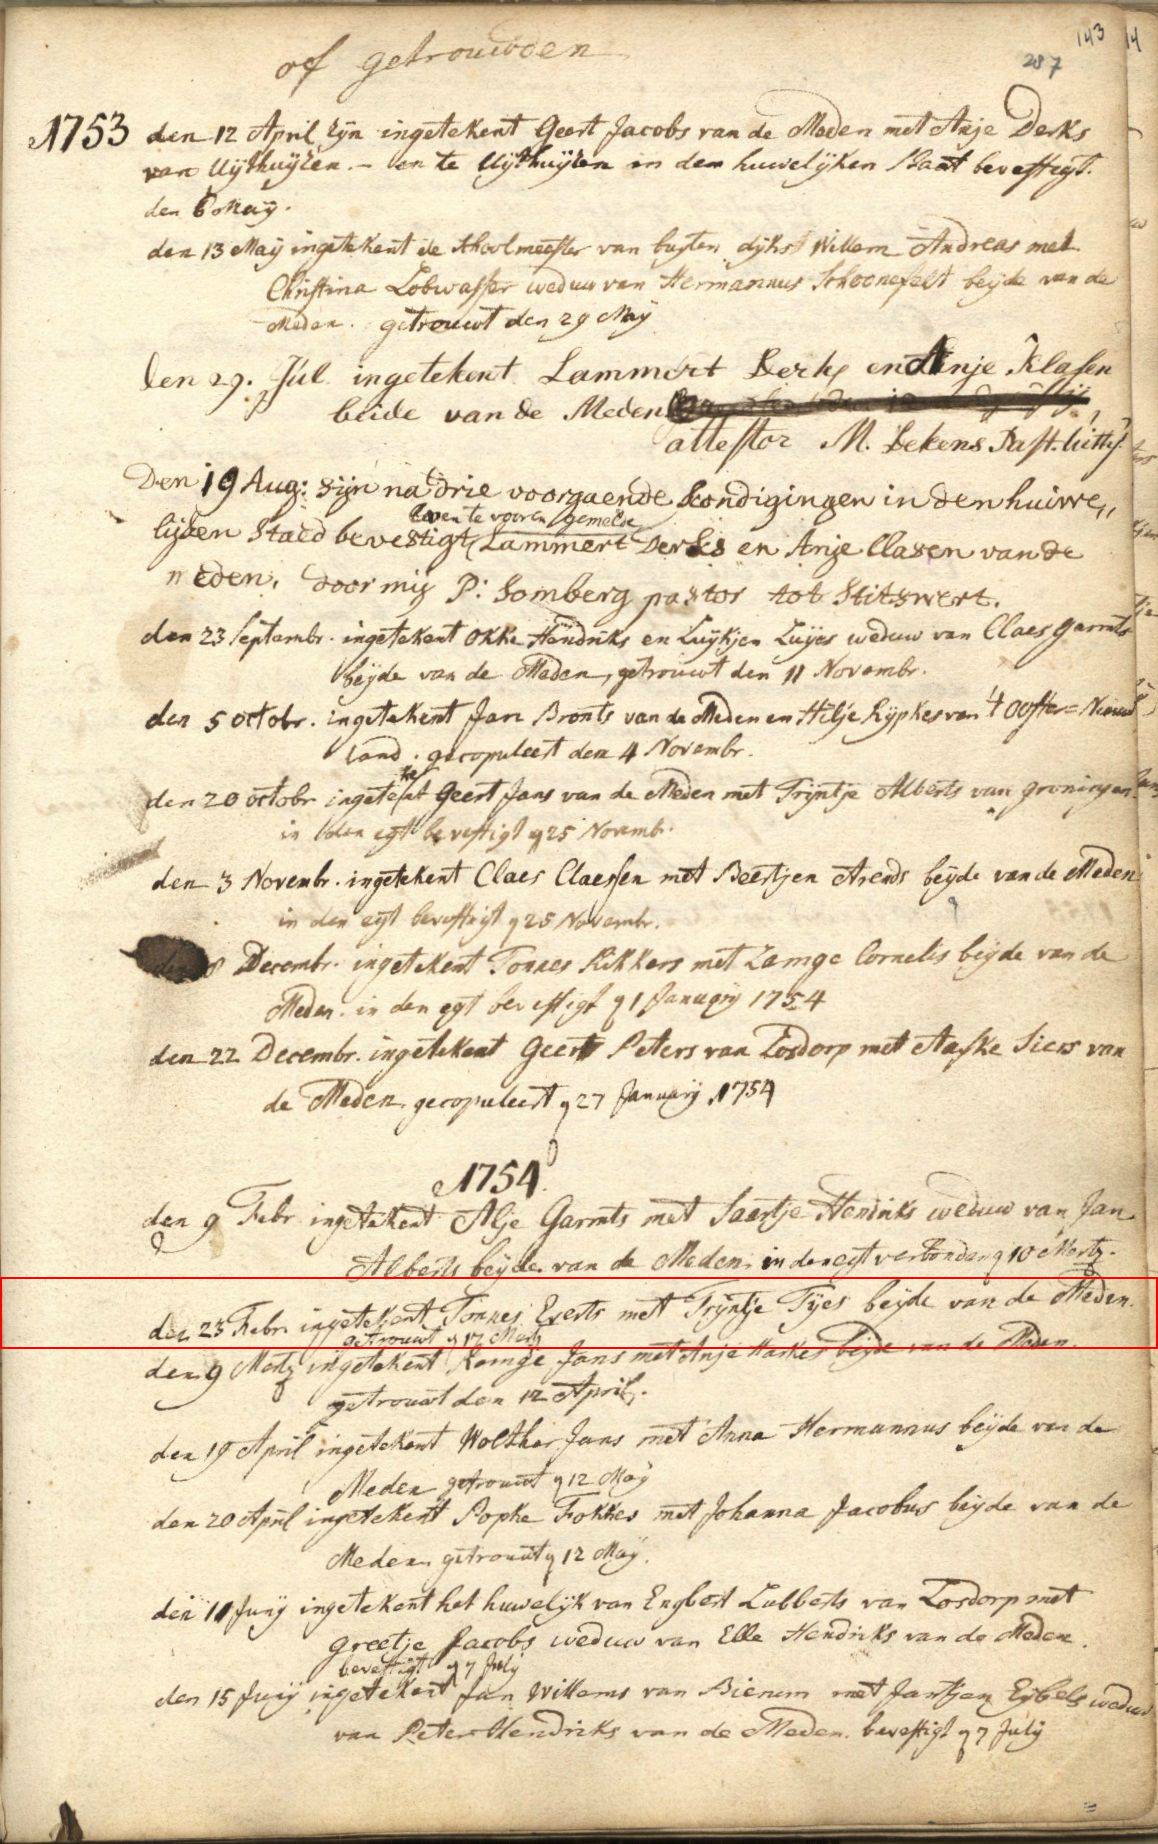 143
14
287
of getrouwden
1753 den 12 April zijn ingetekent Geert Jacobs van de Meden met Anje Derks
van Uijthuijzen. – en te Uijthuijzen in den huwelijken Staat bevestigt.
den 6 Maij.
den 13 Maij ingetekent de Schoolmeester van buyten dijks Willem Andreas met
Christina Lobwasser weduw van Hermannus Schoonefelt beijde van de
Meden. getrouwt den 29 Maij
den 29. Jul. ingetekent Lammert Derks en Anje Klasen
beide van de Meden
attestor M. Bekens Past.
Den 19 Aug: zijn na drie voorgaende kondigingen in den huiwe„
even te vooren gemelde
lijken Staed bevestigt Lammert Derks en Anje Clasen van de
meden. door mij P: Somberg pastor tot Stitswert.
den 23 Septembr. ingetekent Okke Hendriks en Luijkjen Luijes weduw van Claes Garmts
beijde van de Meden, getrouwt den 11 Novembr.
den 5 octobr. ingetekent Jan Bronts van de Meden en Hilje Rijpkes van 't Ooster= Nieuw
land. gecopuleert den 4 Novembr.
den 20 octobr ingetekent Geert Jans van de Meden met Trijntje Alberts van groningen
in den egt bevestigt q 25 Novemb.
den 3 Novembr. ingetekent Claes Claessen met Beertjen Arends beijde van de Meden
in den egt bevestigt q 25 Novembr.
den 8 Decembr. ingetekent Tonnes Rikkers met Zamge Cornelis beijde van de
Meden. in den egt bevestigt q 1 Januarij 1754
den 22 Decembr. ingetekent Geert Peters van Losdorp met Aafke Siers van
de Meden gecopuleert q 27 Januarij 1754
1754
den 9 Febr ingetekent Alje Garmts met Saartje Hendriks weduw van Jan
Alberts beijde van de Meden. in den egt verbonden q 10 Mertz.
den 23 Febr. ingetekent Tonnes Everts met Trijntje Tjes beijde van de Meden.
getrouwt q 17 Mertz
den 9 Mertz ingetekent Remge Jans met Anje Harkes beijde van de Meden.
getrouwt den 12 April.
den 19 April ingetekent Wolther Jans met Anna Hermannus beijde van de
Meden getrouwt q 12 Maij
den 20 April ingetekent Popke Fokkes met Johanna Jacobus beijde van de
Meden, getrouwt q 12 Maij.
den 11 Junij ingetekent het huwelijk van Engbert Lubberts van Losdorp met
Greetje Jacobs weduw van Elle Hendriks van de Meden.
bevestigt q 7 Julij
den 15 Junij ingetekent Jan Willems van Bierum met Jantjen Eijbels weduw
van Peter Hendriks van de Meden. bevestigt q 7 Julij